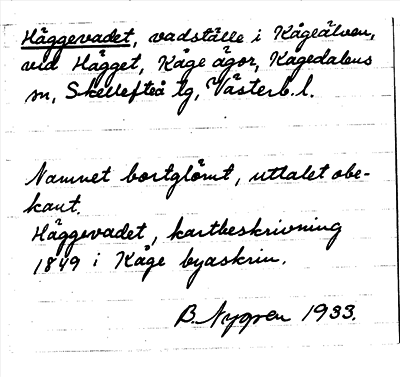 Häggevadet, vadställe i Kågeälven,
vid Hägget, Kåge ägor, Kågedalens
sn, Skellefteå tg, Västerb. l.
Namnet bortglömt, uttalet obe-
kant.
Häggevadet, kartbeskrivning
1849 i Kåge byaskrin.
B. Nygren 1933.